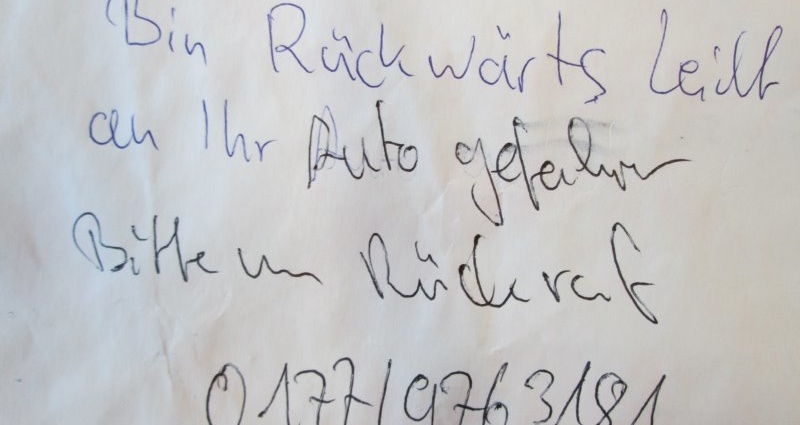 Bin Rückwärts Leicht
an Ihr Auto gefahren
Bitte um Rückruf
0177/9763181